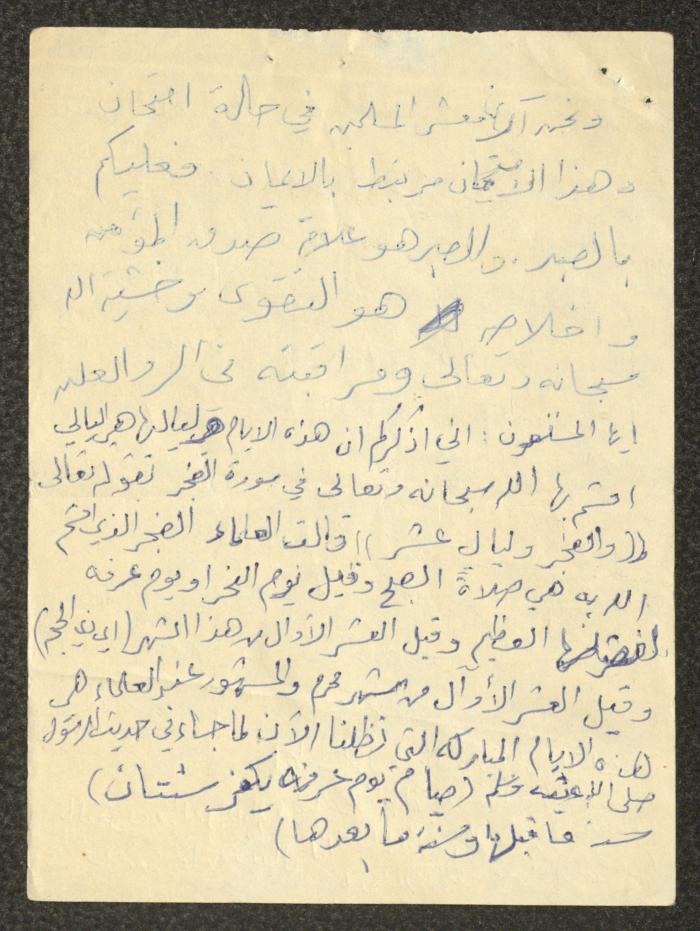 ونحن الآن معشر المسلمين في حالة امتحان
وهذا الامتحان مرتبط بالايمان. فعليكم
بالصبر. والصبر هو علامة صدق المؤمن
واخلاصه هو التقوى وخشية الله
سبحانه وتعالى ومراقبته في السر والعلن
ايها المستمعون: اني اذكركم ان هذه الايام لياليها هي ليالي
اقسم بها الله سبحانه وتعالى في سورة الفجر بقوله تعالى
((والفجر وليال عشر)) قالت العلماء الفجر الذي اقسم
الله به هي صلاة الصبح وقيل يوم النحر او يوم عرفه
لفضلها العظيم وقيل العشر الأوال من هذا الشهر (اي ذي الحجة)
وقيل العشر الأوال من شهر محرم والمشهور عند العلماء هي
هذه الايام المباركه التي تظلنا الآن لما جاء في حديث الرسول
صلى الله عليه وسلم (صيام يوم عرفه يكفر سنتان)
سنة ما قبلها وسنة ما بعدها)